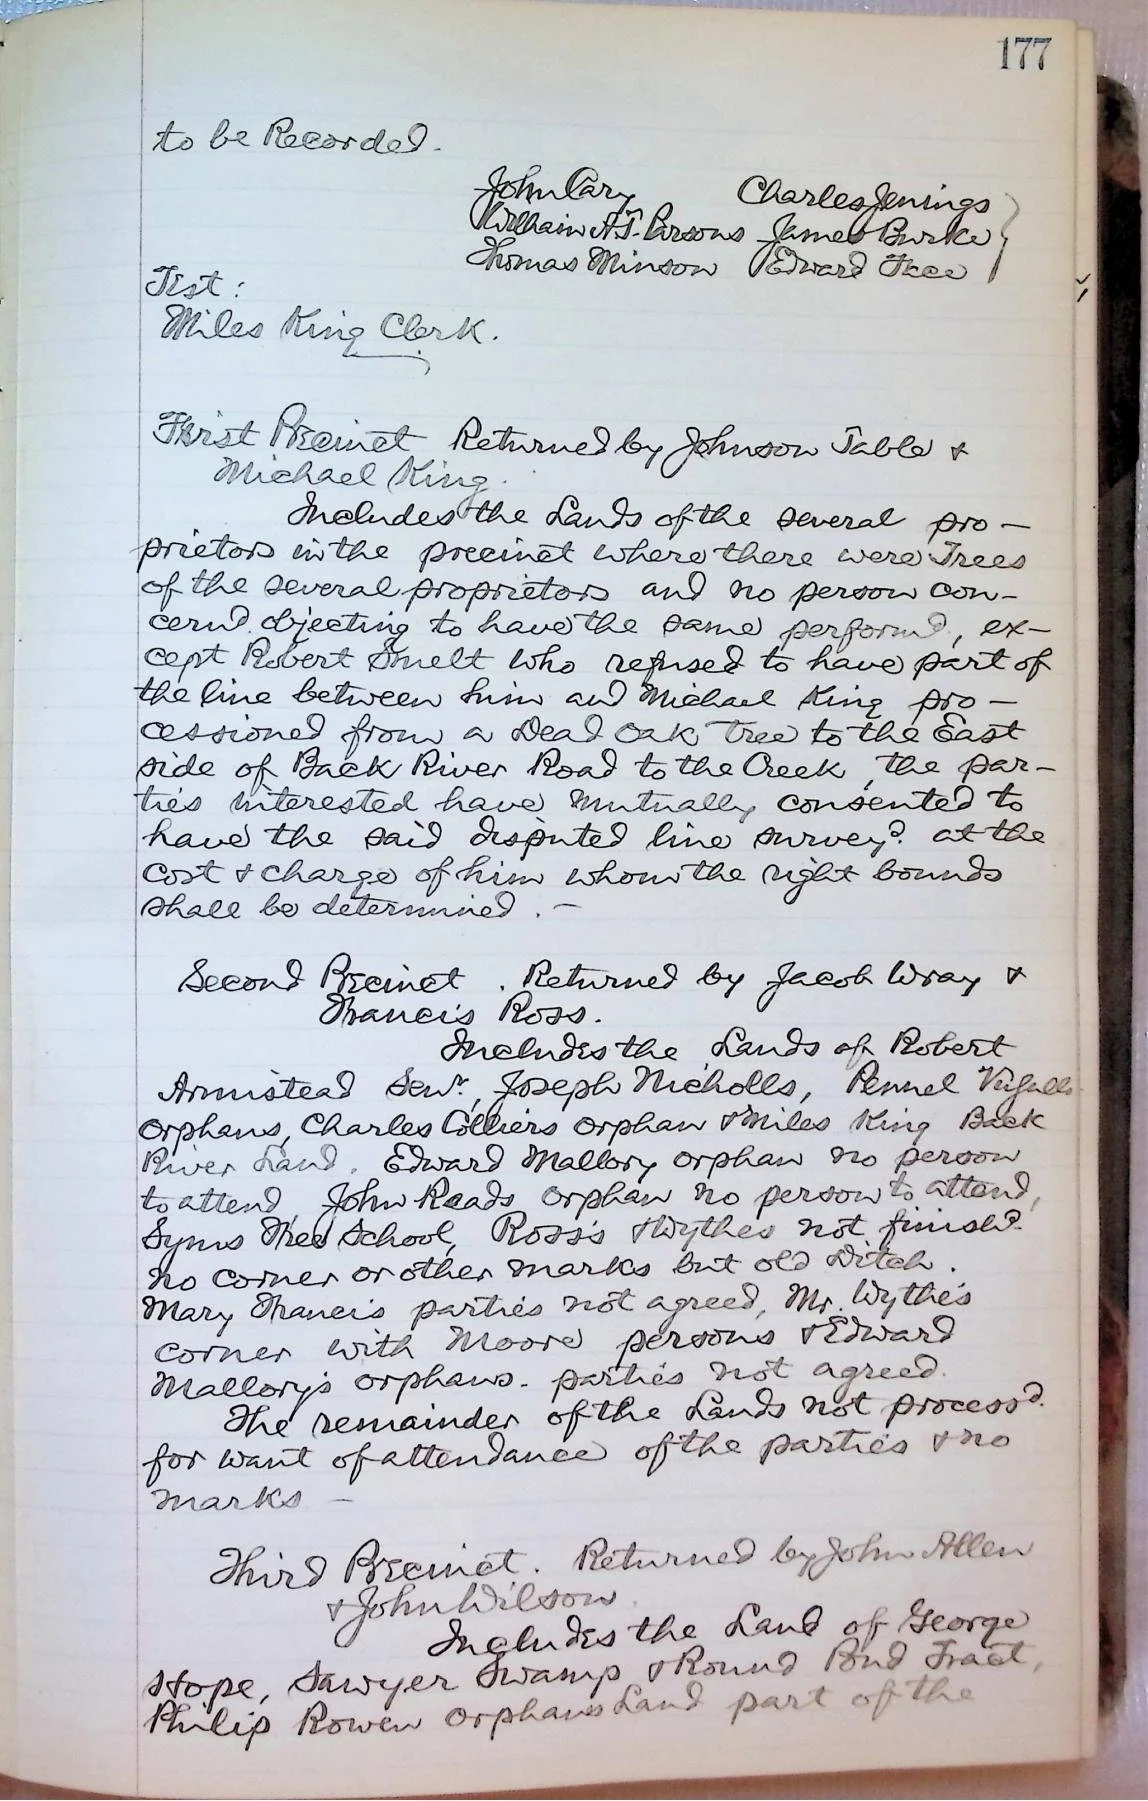 177
to be Recorded.
John Cary Charles Jenings
William A.T. Parsons James Burke
Thomas Minson Edward Face
Test:
Miles King Clerk.
First Precinct Returned by Johnson Table &
Michael King.
Includes the Lands of the several pro-
prietors in the precinct where there were Trees
of the several proprietors and no person con-
cernd. objecting to have the same performd, ex-
cept Robert Smelt who refused to have part of
the line between him and Michael King pro-
cessioned from a Dead Oak Tree to the East
side of Back River Road to the Creek, the par-
ties interested have mutually consented to
have the said disputed line surveyd. at the
cost & charge of him whom the right bounds
shall be determined. -
Second Precinct. Returned by Jacob Wray &
Francis Ross.
Includes the Lands of Robert
Armistead Senr., Joseph Nicholls, Pennel
Orphans, Charles Colliers orphan & Miles King Back
River Land. Edward Mallory orphan no person
to attend, John Reads orphan no person to attend,
Syms Free School, Ross's & Wythes not finishd.
no corner or other marks but old Ditch.
Mary Francis parties not agreed, Mr. Wythe's
corner with Moore persons & Edward
Mallory's orphans. parties not agreed.
The remainder of the Lands not processd.
for want of attendance of the parties & no
marks -
Third Precinct. Returned by John Allen
& John Wilson.
Includes the Land of George
Hope, Sawyer Swamp & Round Pond Tract,
Philip Rowen orphans Land part of the